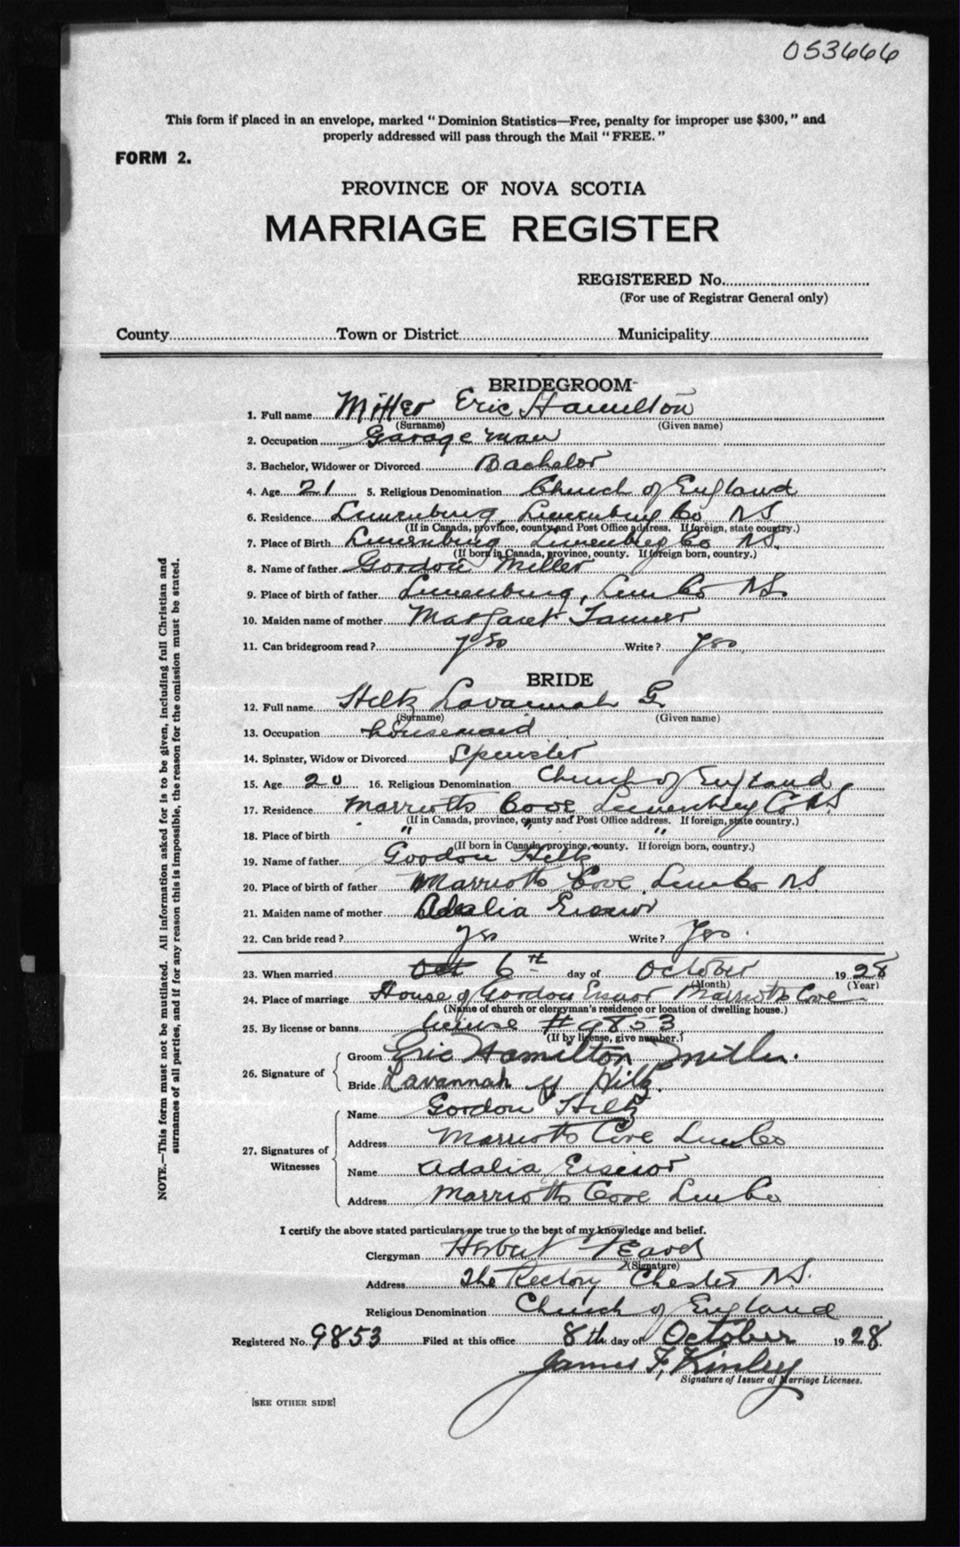 053666
This form if placed in an envelope, marked "Dominion Statistics—Free, penalty for improper use $300," and
properly addressed will pass through the Mail "FREE."
FORM 2.
PROVINCE OF NOVA SCOTIA
MARRIAGE REGISTER
REGISTERED No.
(For use of Registrar General only)
County Town or District Municipality
BRIDEGROOM
1. Full name Miller Eric Hamilton
(Surname) (Given name)
2. Occupation Garage man
3. Bachelor, Widower or Divorced Bachelor
4. Age 21 5. Religious Denomination Church of England
6. Residence Lunenburg, Lunenburg Co NS
(If in Canada, province, county and Post Office address. If foreign, state country.)
7. Place of Birth Lunenburg Lunenburg Co NS.
(If born in Canada, province, county. If foreign born, country.)
8. Name of father Gordon Miller
9. Place of birth of father Lunenburg, Lun Co NS
10. Maiden name of mother Margaret Tanner
11. Can bridegroom read? yes Write? Yes
BRIDE
12. Full name Hiltz Lavannah G.
(Surname) (Given name)
13. Occupation housemaid
14. Spinster, Widow or Divorced Spinster
15. Age 20 16. Religious Denomination Church of England
17. Residence Marriotts Cove Lunenburg Co NS
(If in Canada, province, county and Post Office address. If foreign, state country.)
18. Place of birth " " "
(If born in Canada, province, county. If foreign born, country.)
19. Name of father Gordon Hiltz
20. Place of birth of father Marriotts Cove Lun Co NS
21. Maiden name of mother Adalia Eisnor
22. Can bride read? yes Write? Yes.
23. When married Oct 6th day of October 1928
(Month) (Year)
24. Place of marriage House of Gordon Eisnor Marriotts Cove
(Name of church or clergyman's residence or location of dwelling house.)
25. By license or banns license # 9853
(If by license, give number.)
26. Signature of
Groom Eric Hamilton Miller.
Bride Lavannah G Hiltz.
27. Signatures of Witnesses
Name Gordon Hiltz
Address Marriotts Cove Lun Co
Name Adalia Eisnor
Address Marriotts Cove Lun Co
I certify the above stated particulars are true to the best of my knowledge and belief.
Clergyman Herbert
(Signature)
Address The Rectory Chester N.S.
Religious Denomination Church of England
Registered No. 9853 Filed at this office 8th day of October 1928.
James F. Kinley
Signature of Issuer of Marriage Licenses.
[SEE OTHER SIDE]
NOTE.—This form must not be mutilated. All information asked for is to be given, including full Christian and
surnames of all parties, and if for any reason this is impossible, the reason for the omission must be stated.